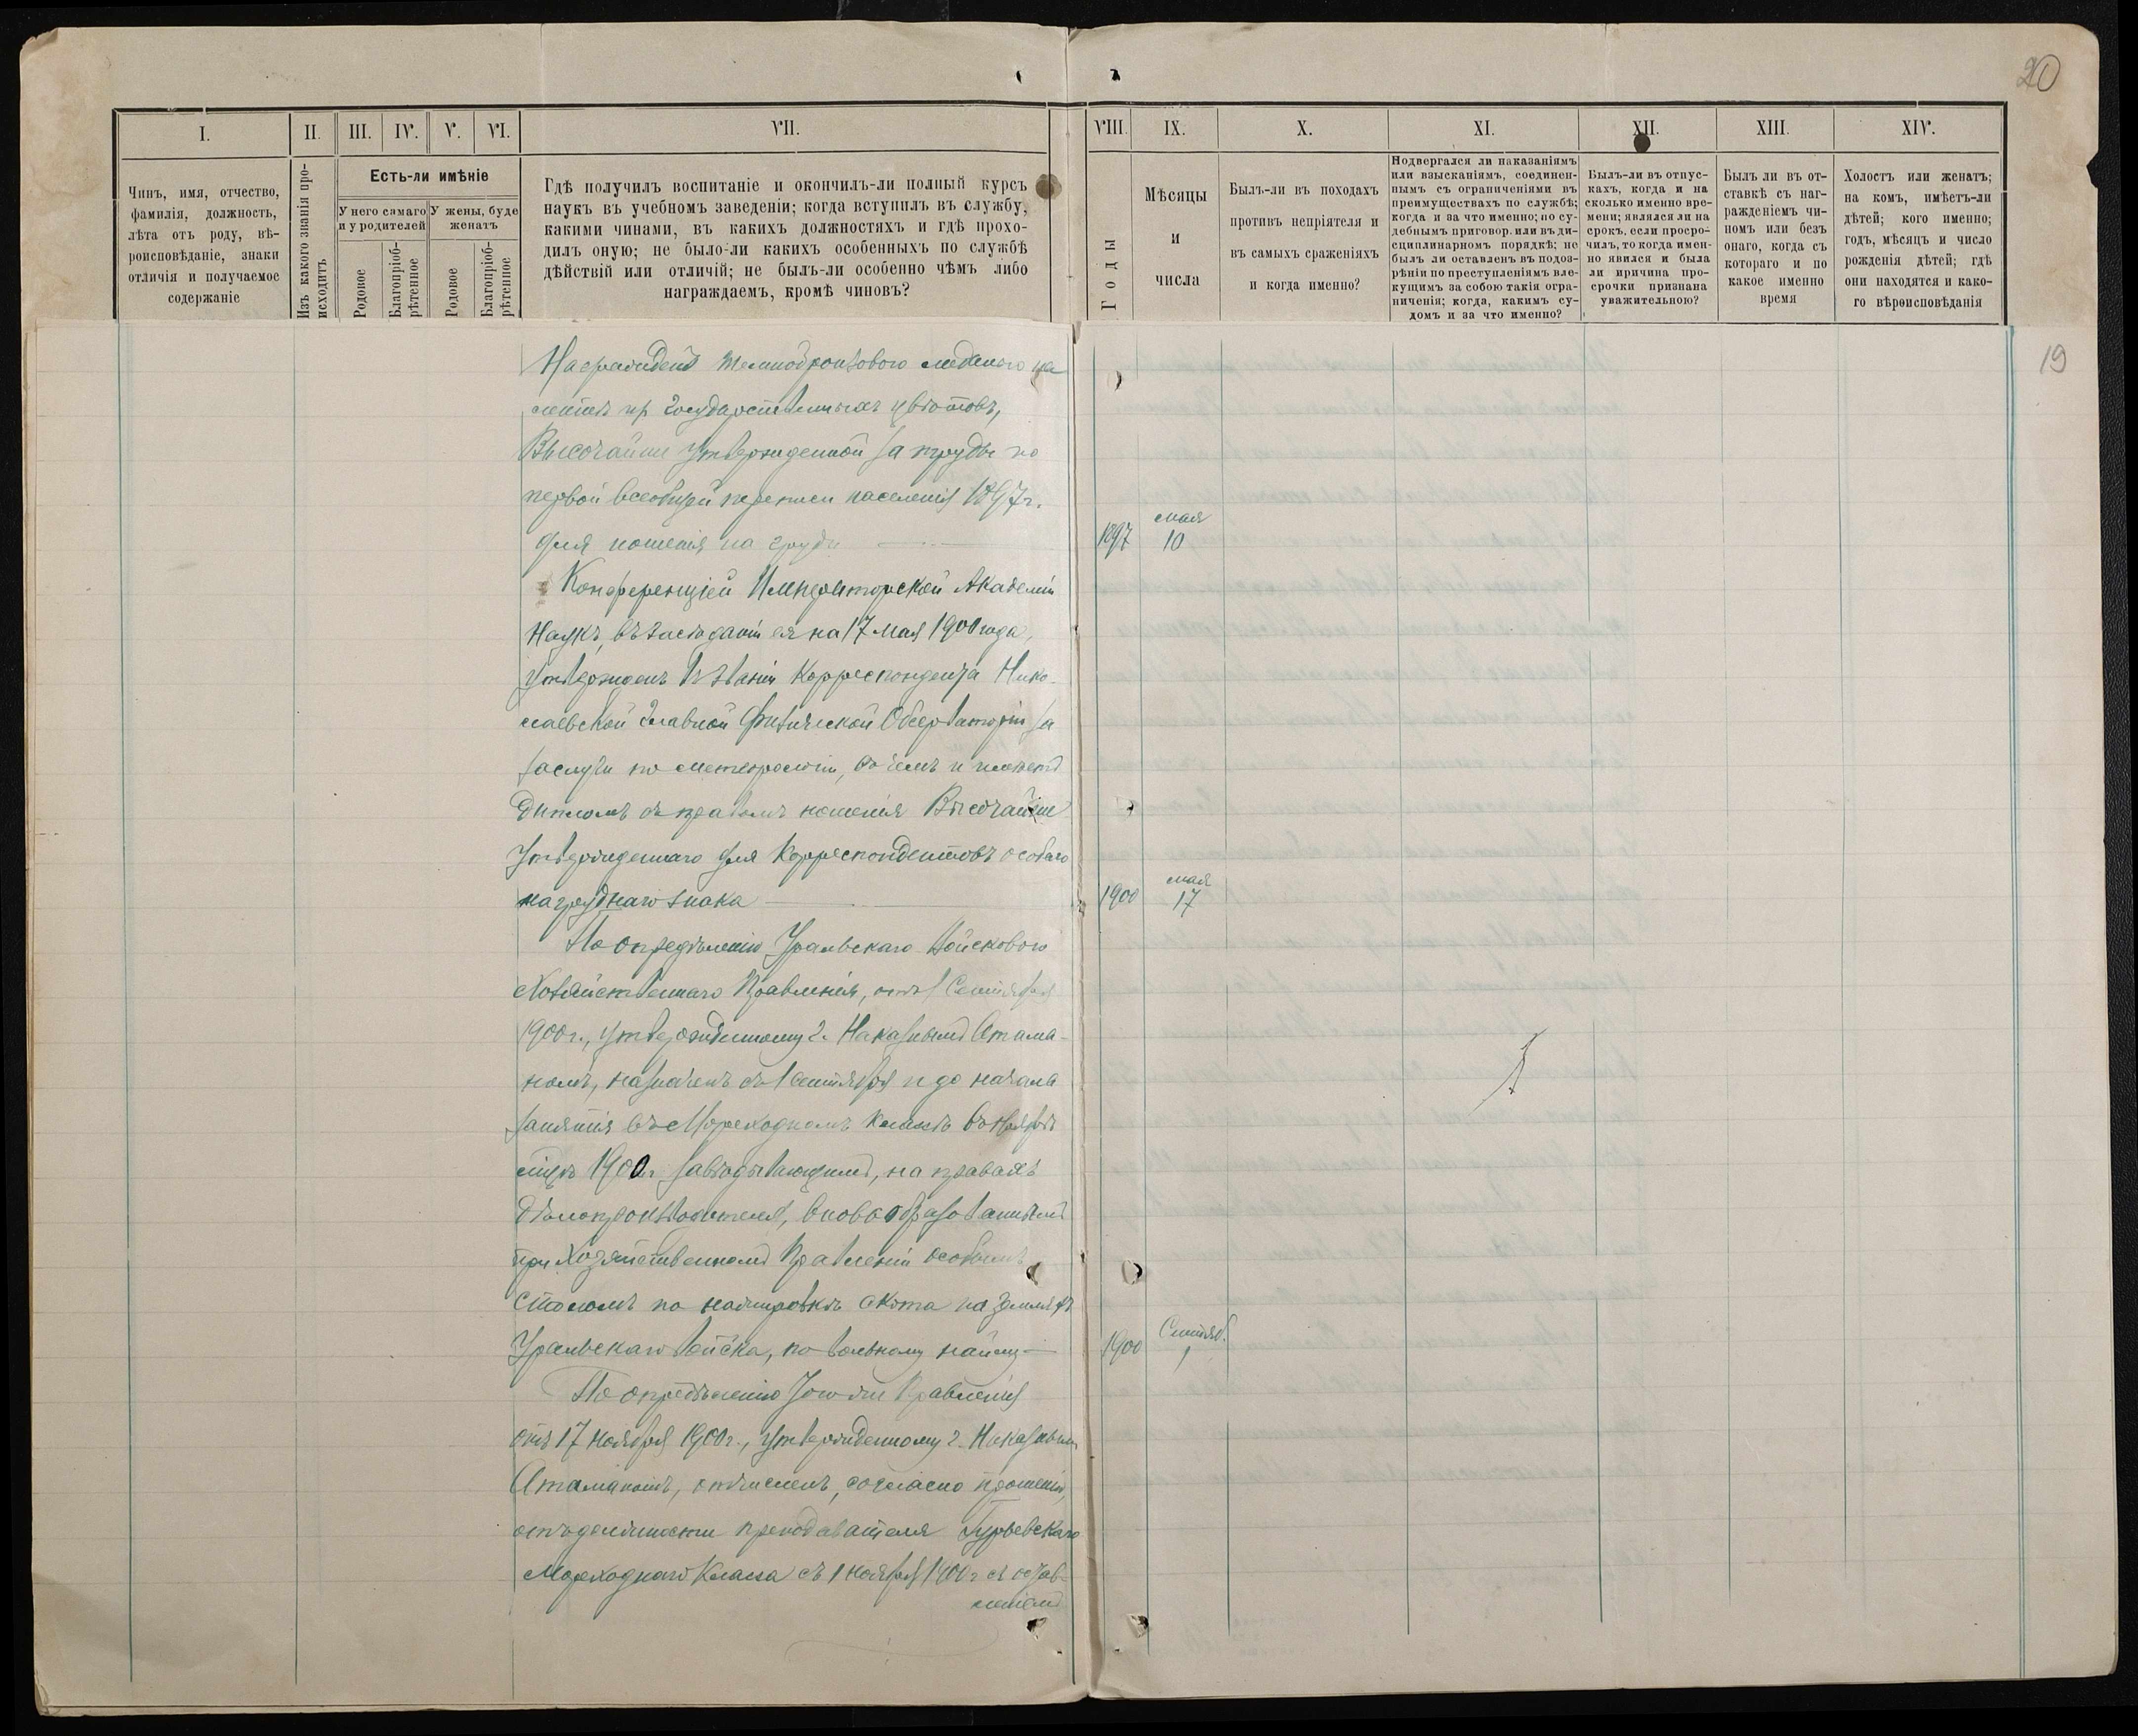 20
I.
II.
III.
IV.
V.
VI.
VII.
VIII.
IX.
X.
XI.
XII.
XIII.
XIV.
Чинъ, имя, отчество,
фамилія, должность,
лѣта отъ роду, вѣ-
роисповѣданіе, знаки
отличія и получаемое
содержаніе
Изъ какого званія про-
исходитъ
Есть-ли имѣніе
У него самаго
и у родителей
У жены, буде
женатъ
Родовое
Благопріоб-
рѣтенное
Родовое
Благопріоб-
рѣтенное
Гдѣ получилъ воспитаніе и окончилъ-ли полный курсъ
наукъ въ учебномъ заведеніи; когда вступилъ въ службу,
какими чинами, въ какихъ должностяхъ и гдѣ прохо-
дилъ оную; не было-ли какихъ особенныхъ по службѣ
дѣйствій или отличій; не былъ-ли особенно чѣмъ либо
награждаемъ, кромѣ чиновъ?
Годы
Мѣсяцы
и
числа
Былъ-ли въ походахъ
противъ непріятеля и
въ самыхъ сраженіяхъ
и когда именно?
Подвергался ли наказаніямъ
или взысканіямъ, соединен-
нымъ съ ограниченіями въ
преимуществахъ по службѣ;
когда и за что именно; по су-
дебнымъ приговор. или въ ди-
сциплинарномъ порядкѣ; не
былъ ли оставленъ въ подоз-
рѣніи по преступленіямъ вле-
кущимъ за собою такія огра-
ниченія; когда, какимъ су-
домъ и за что именно?
Былъ-ли въ отпус-
кахъ, когда и на
сколько именно вре-
мени; являлся ли на
срокъ, если просро-
чилъ, то когда имен-
но явился и была
ли причина про-
срочки признана
уважительною?
Былъ ли въ от-
ставкѣ съ наг-
ражденіемъ чи-
номъ или безъ
онаго, когда съ
котораго и по
какое именно
время
Холостъ или женатъ;
на комъ, имѣетъ-ли
дѣтей; кого именно;
годъ, мѣсяцъ и число
рожденія дѣтей; гдѣ
они находятся и како-
го вѣроисповѣданія
19
Награжденъ темнобронзового медалью на
лентѣ изъ Государственныхъ цвѣтовъ,
Высочайше утвержденной за труды по
первой всеобщей переписи населенія 1897 г.
для ношенія на груди
1897 мая 10
Конференціей Императорской Академіи
Наукъ, въ засѣданіи ея на 17 мая 1900 года,
утвержденъ въ званіи Корреспондента Нико-
лаевской Главной Физической Обсерваторіи за
заслуги по метеорологіи, въ чемъ и имѣетъ
дипломъ съ правомъ ношенія Высочайше
утвержденнаго для Корреспондентовъ особаго
нагруднаго знака
1900 мая 17
По опредѣленію Уральскаго Войскового
Хозяйственнаго Правленія, отъ 1 Сентября
1900 г., утвержденному г. Наказнымъ Атама-
номъ, назначенъ съ 1 Сентября и до начала
занятія въ Мореходномъ классѣ въ Ноябрѣ
мцѣ 1900 г. завѣдывающимъ, на правахъ
дѣлопроизводителя, вновь образованнымъ
при Хозяйственномъ Правленіи особымъ
Столомъ по нашировкѣ скота на земляхъ
Уральскаго войска, по вольному найму
1900 Сентяб. 1
По опредѣленію того же Правленія
отъ 17 Ноября 1900 г., утвержденному г. Наказнымъ
Атаманомъ, отчисленъ, согласно прошенія,
отъ должности преподавателя Гурьевскаго
Мореходнаго Класса съ 1 Ноября 1900 г. съ остав-
леніемъ